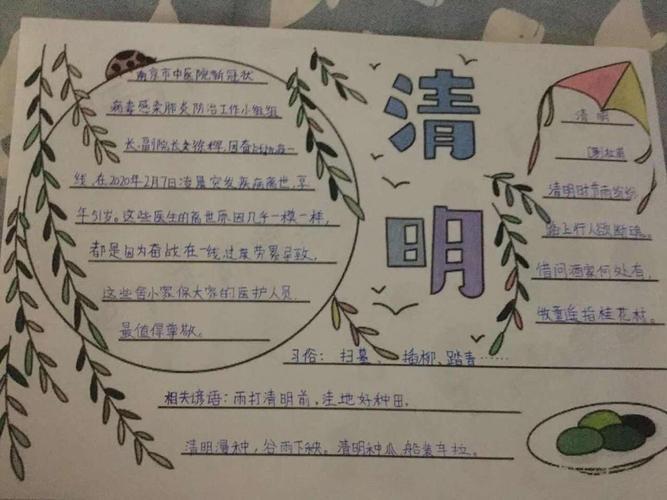 清明
南京市中医院新冠状
病毒感染肺炎防治工作小组组
长、副院长徐辉,因奋战在一
线,在2020年2月7日凌晨突发疾病离世,享
年51岁。这些医生的离世原因几乎一模一样,
都是因为奋战在一线,过度劳累导致,
这些舍小家保大家的医护人员,
最值得尊敬。
清明
[唐]杜甫
清明时节雨纷纷
路上行人欲断魂。
借问酒家何处有,
牧童遥指桂花村。
习俗:扫墓、插柳、踏青……
相关谚语:雨打清明前,洼地好种田。
清明浸种,谷雨下秧。清明种瓜,船装车拉。